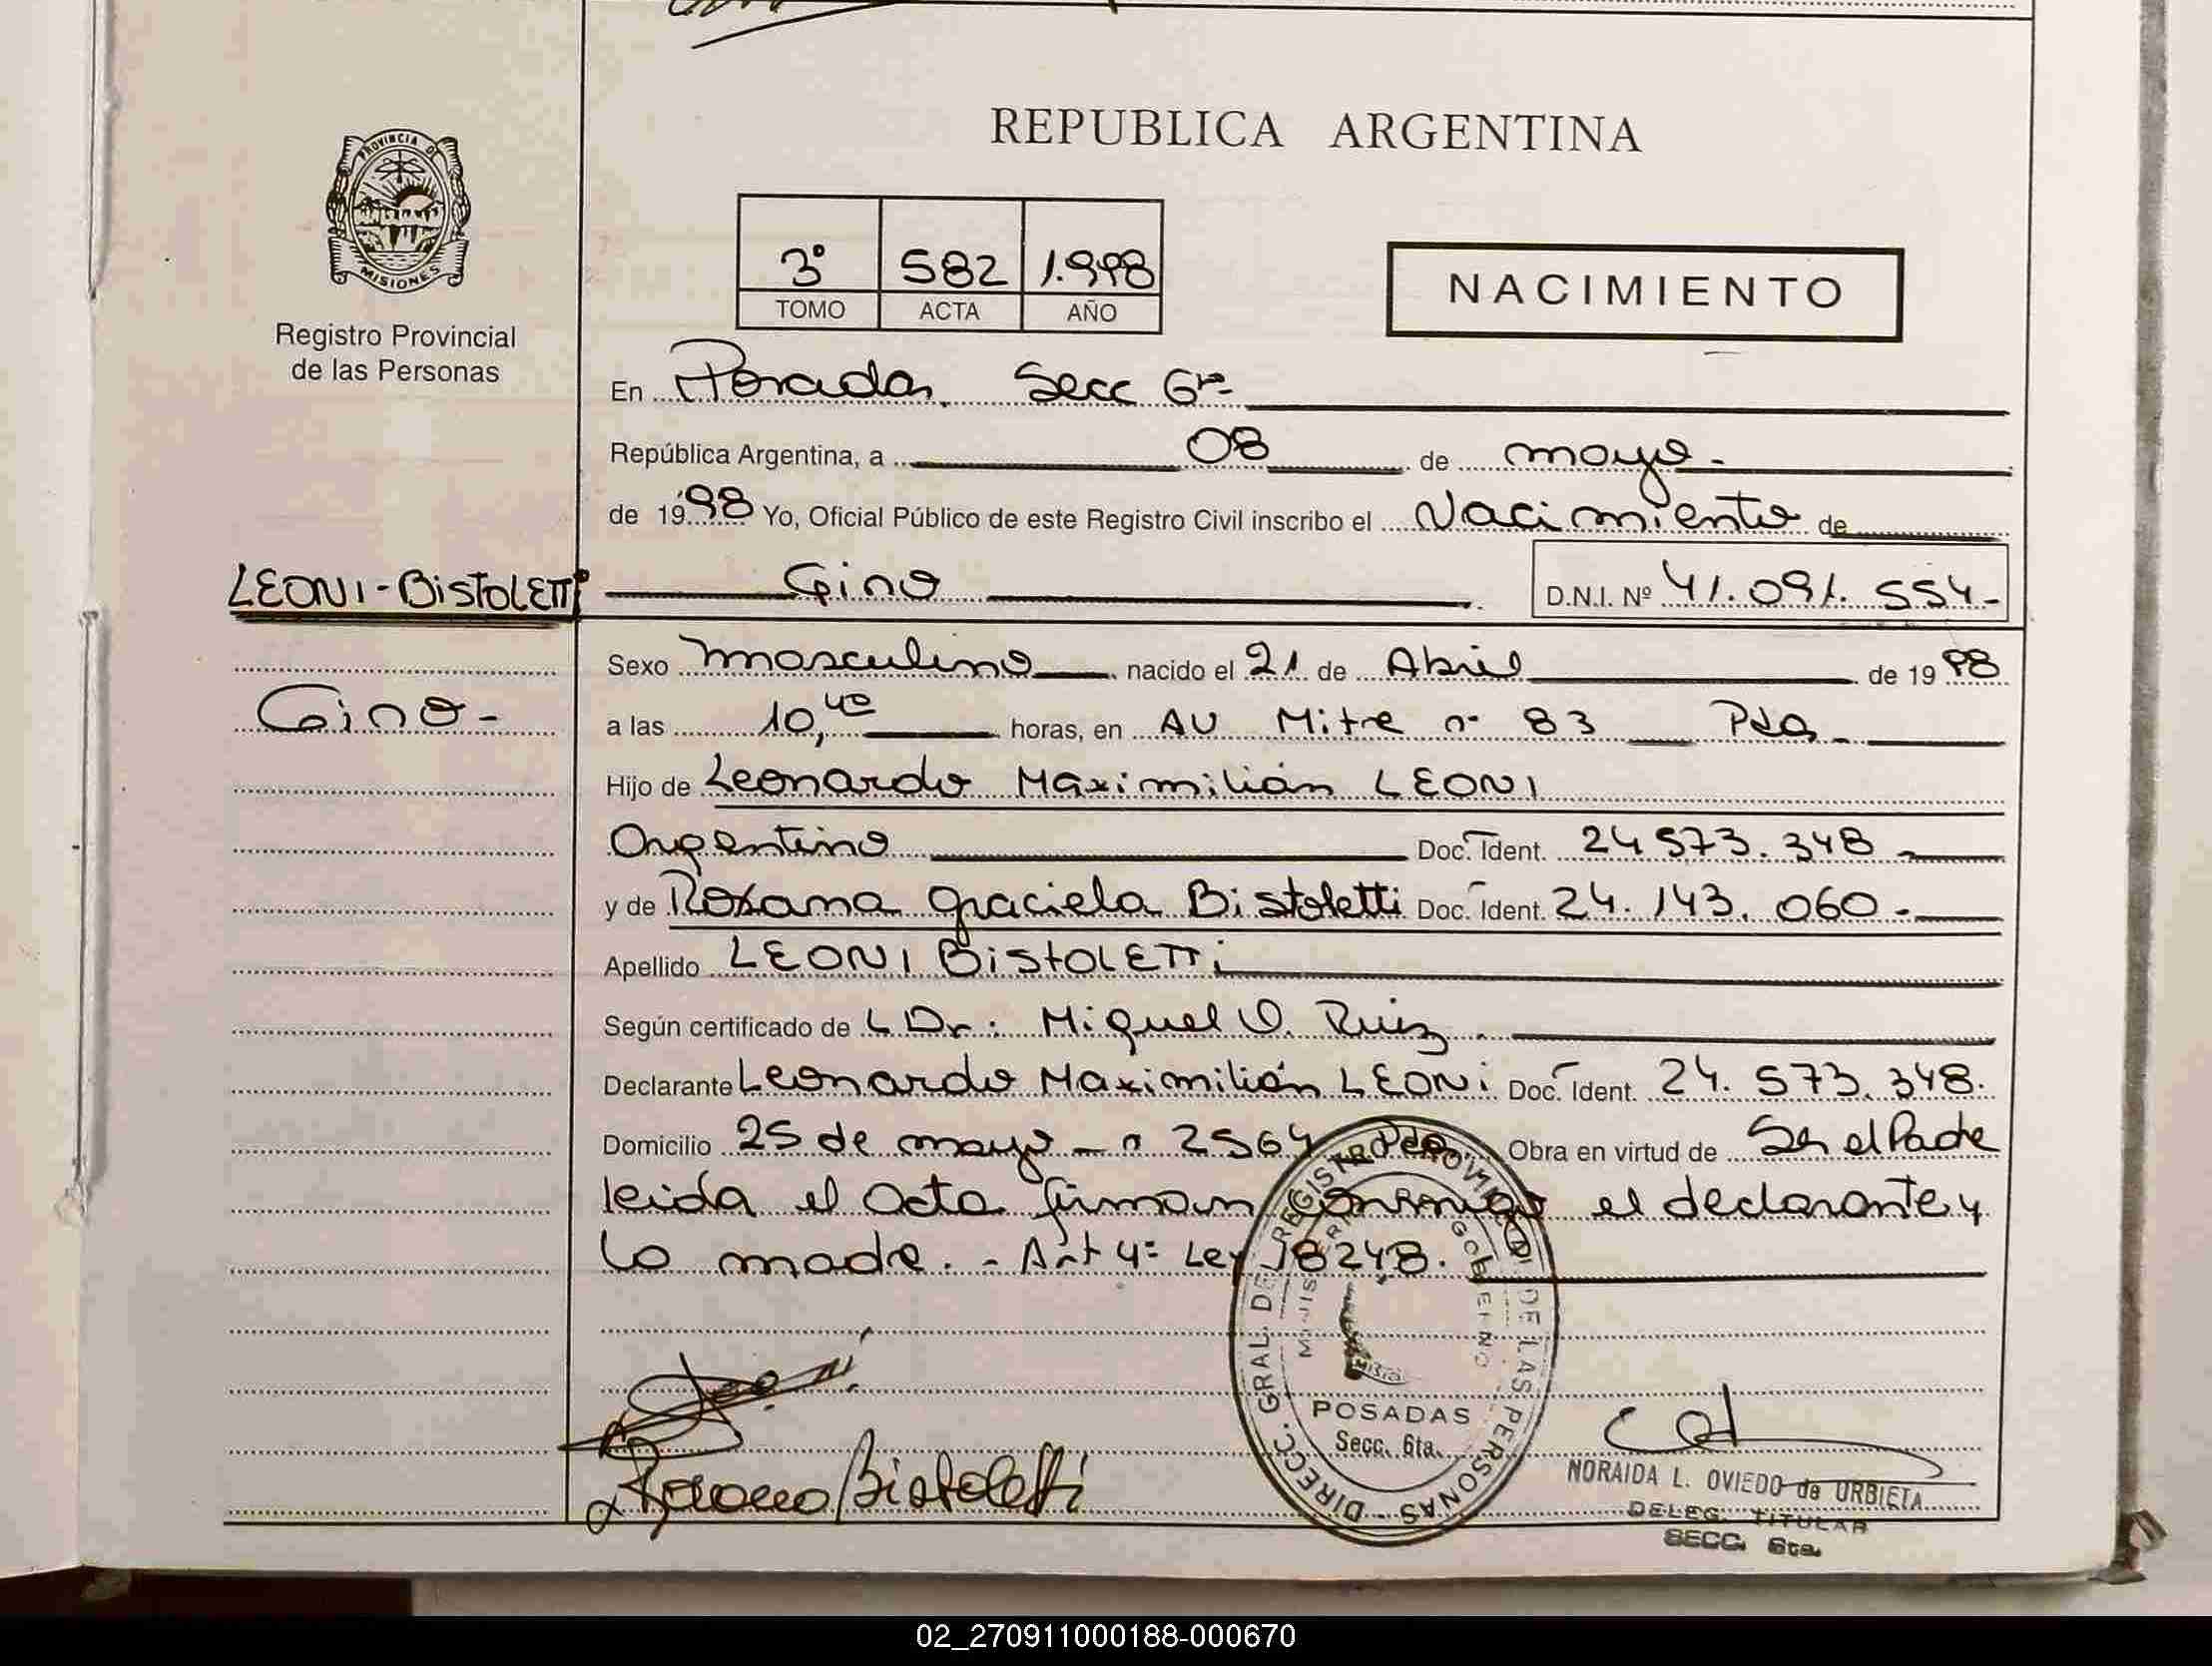 REPUBLICA ARGENTINA
PROVINCIA DE
MISIONES
Registro Provincial
de las Personas
3º 582 1.998
TOMO ACTA AÑO
NACIMIENTO
En Posadas, Secc 6ta-
República Argentina, a 08 de mayo-
de 1998 Yo, Oficial Público de este Registro Civil inscribo el Nacimiento de
LEONI-BistoLETTi Gino D.N.I. Nº 41.091.554-
Sexo masculino nacido el 21 de Abril de 1998
Gino-
a las 10,40 horas, en AV Mitre nº 83 Pdas-
Hijo de Leonardo Maximilián LEONI
Argentino Doc. Ident. 24573.348-
y de Roxana Graciela Bistoletti Doc. Ident. 24.143.060-
Apellido LEONI BistoLETTi
Según certificado de L Dr: Miguel O. Ruiz
Declarante Leonardo Maximilián LEONi Doc. Ident. 24.573.348.
Domicilio 25 de mayo - nº 2564 Pdas Obra en virtud de Ser el Padre
leida el Acta firman conmigo el declarante y
la madre. - Art 4º Ley 18248.
DIRECC. GRAL. DE REGISTRO PROVINCIAL DE LAS PERSONAS
MINISTERIO GOBIERNO
POSADAS
Secc. 6ta.
Roxana Bistoletti
NORAIDA L. OVIEDO de URBIETA
DELEG. TITULAR
SECC. 6ta.
02_270911000188-000670